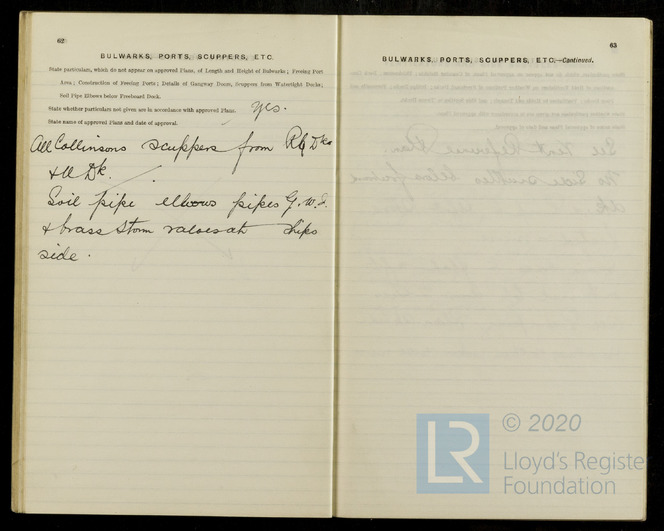 62
BULWARKS, PORTS, SCUPPERS, ETC.
State particulars, which do not appear on approved Plans, of Length and Height of Bulwarks; Freeing Port
Area; Construction of Freeing Ports; Details of Gangway Doors, Scuppers from Watertight Decks;
Soil Pipe Elbows below Freeboard Deck.
State whether particulars not given are in accordance with approved Plans. Yes.
State name of approved Plans and date of approval.
All Collinsons scuppers from Dks
& U Dk.
Soil pipe elbows pipes G.W.I.
& brass storm valves at ships
side.
63
BULWARKS, PORTS, SCUPPERS, ETC.—Continued.
LR
© 2020
Lloyd's Register
Foundation